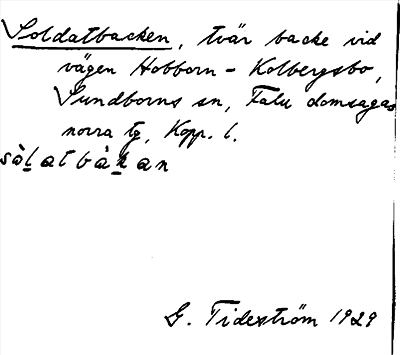 Soldatbacken, tvär backe vid
vägen Hobborn - Kolbergsbo,
Sundborns sn, Falu domsagas
norra tg, Kopp. l.
sàḻatbàḵan
G. Tideström 1929